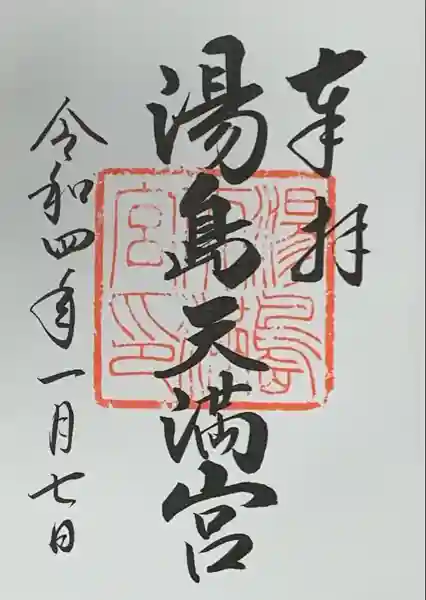 奉拝
湯島天満宮
湯島天満宮印
令和四年一月七日